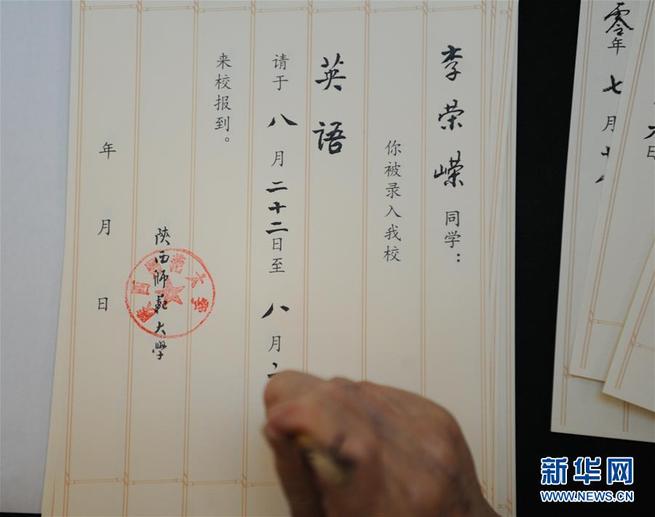 李荣嵘同学：
你被录入我校
英语
请于八月二十二日至八月二
来校报到。
陕西师范大學
年月日
零年七月
日
新华网
WWW.NEWS.CN